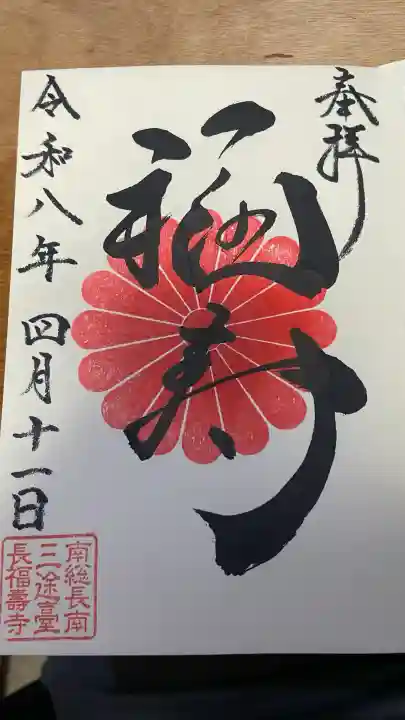 奉拝
福寿
令和八年 四月十一日
南総長南
三途臺
長福壽寺